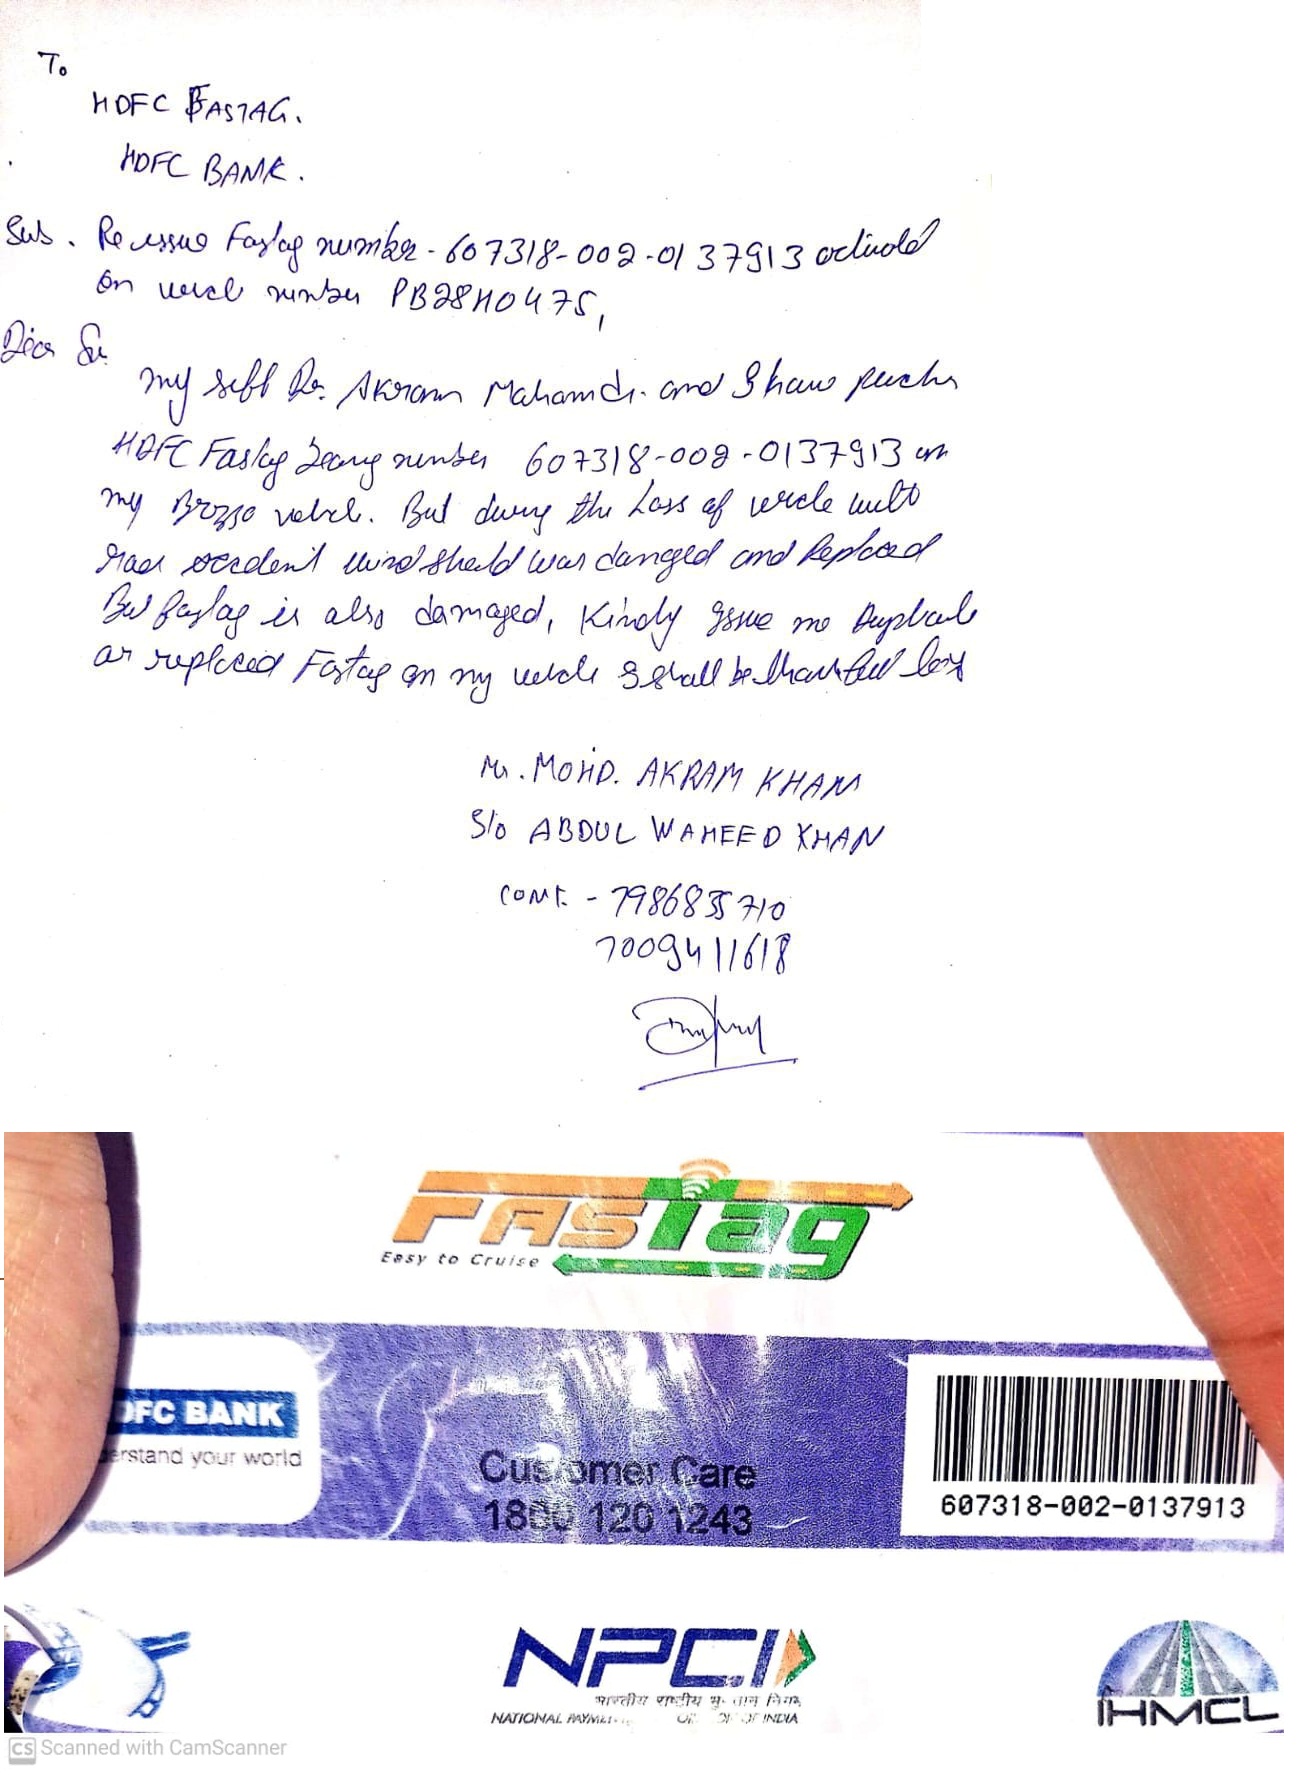 To
HDFC FASTAG.
HDFC BANK.
Sub. Reissue Fastag number - 607318-002-0137913
on number PB28H0475,
Dear Sir
my self Dr. Akram and I have
HDFC Fastag number 607318-002-0137913 on
my. But during the Loss of
accident wind sheld was damged and Replaced
But fastag is also damaged, Kindly Issue me
or replaced Fastag on my I shall be thankful
Mr. MOHD. AKRAM KHAN
S/o ABDUL WAHEED KHAN
CONT. - 7986835710
7009411618
FASTag
Easy to Cruise
DFC BANK
erstand your world
Customer Care
1800 120 1243
607318-002-0137913
NPCI
भारतीय राष्ट्रीय
NATIONAL OF INDIA
IHMCL
CS Scanned with CamScanner